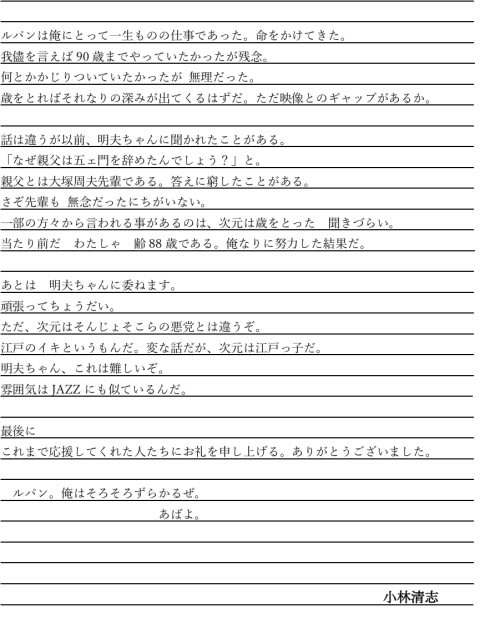 ルパンは俺にとって一生ものの仕事であった。命をかけてきた。
我儘を言えば 90 歳までやっていたかったが残念。
何とかかじりついていたかったが 無理だった。
歳をとればそれなりの深みが出てくるはずだ。ただ映像とのギャップがあるか。
話は違うが以前、明夫ちゃんに聞かれたことがある。
「なぜ親父は五ェ門を辞めたんでしょう？」と。
親父とは大塚周夫先輩である。答えに窮したことがある。
さぞ先輩も 無念だったにちがいない。
一部の方々から言われる事があるのは、次元は歳をとった　聞きづらい。
当たり前だ　わたしゃ　齢 88 歳である。俺なりに努力した結果だ。
あとは　明夫ちゃんに委ねます。
頑張ってちょうだい。
ただ、次元はそんじょそこらの悪党とは違うぞ。
江戸のイキというもんだ。変な話だが、次元は江戸っ子だ。
明夫ちゃん、これは難しいぞ。
雰囲気は JAZZ にも似ているんだ。
最後に
これまで応援してくれた人たちにお礼を申し上げる。ありがとうございました。
ルパン。俺はそろそろずらかるぜ。
あばよ。
小林清志